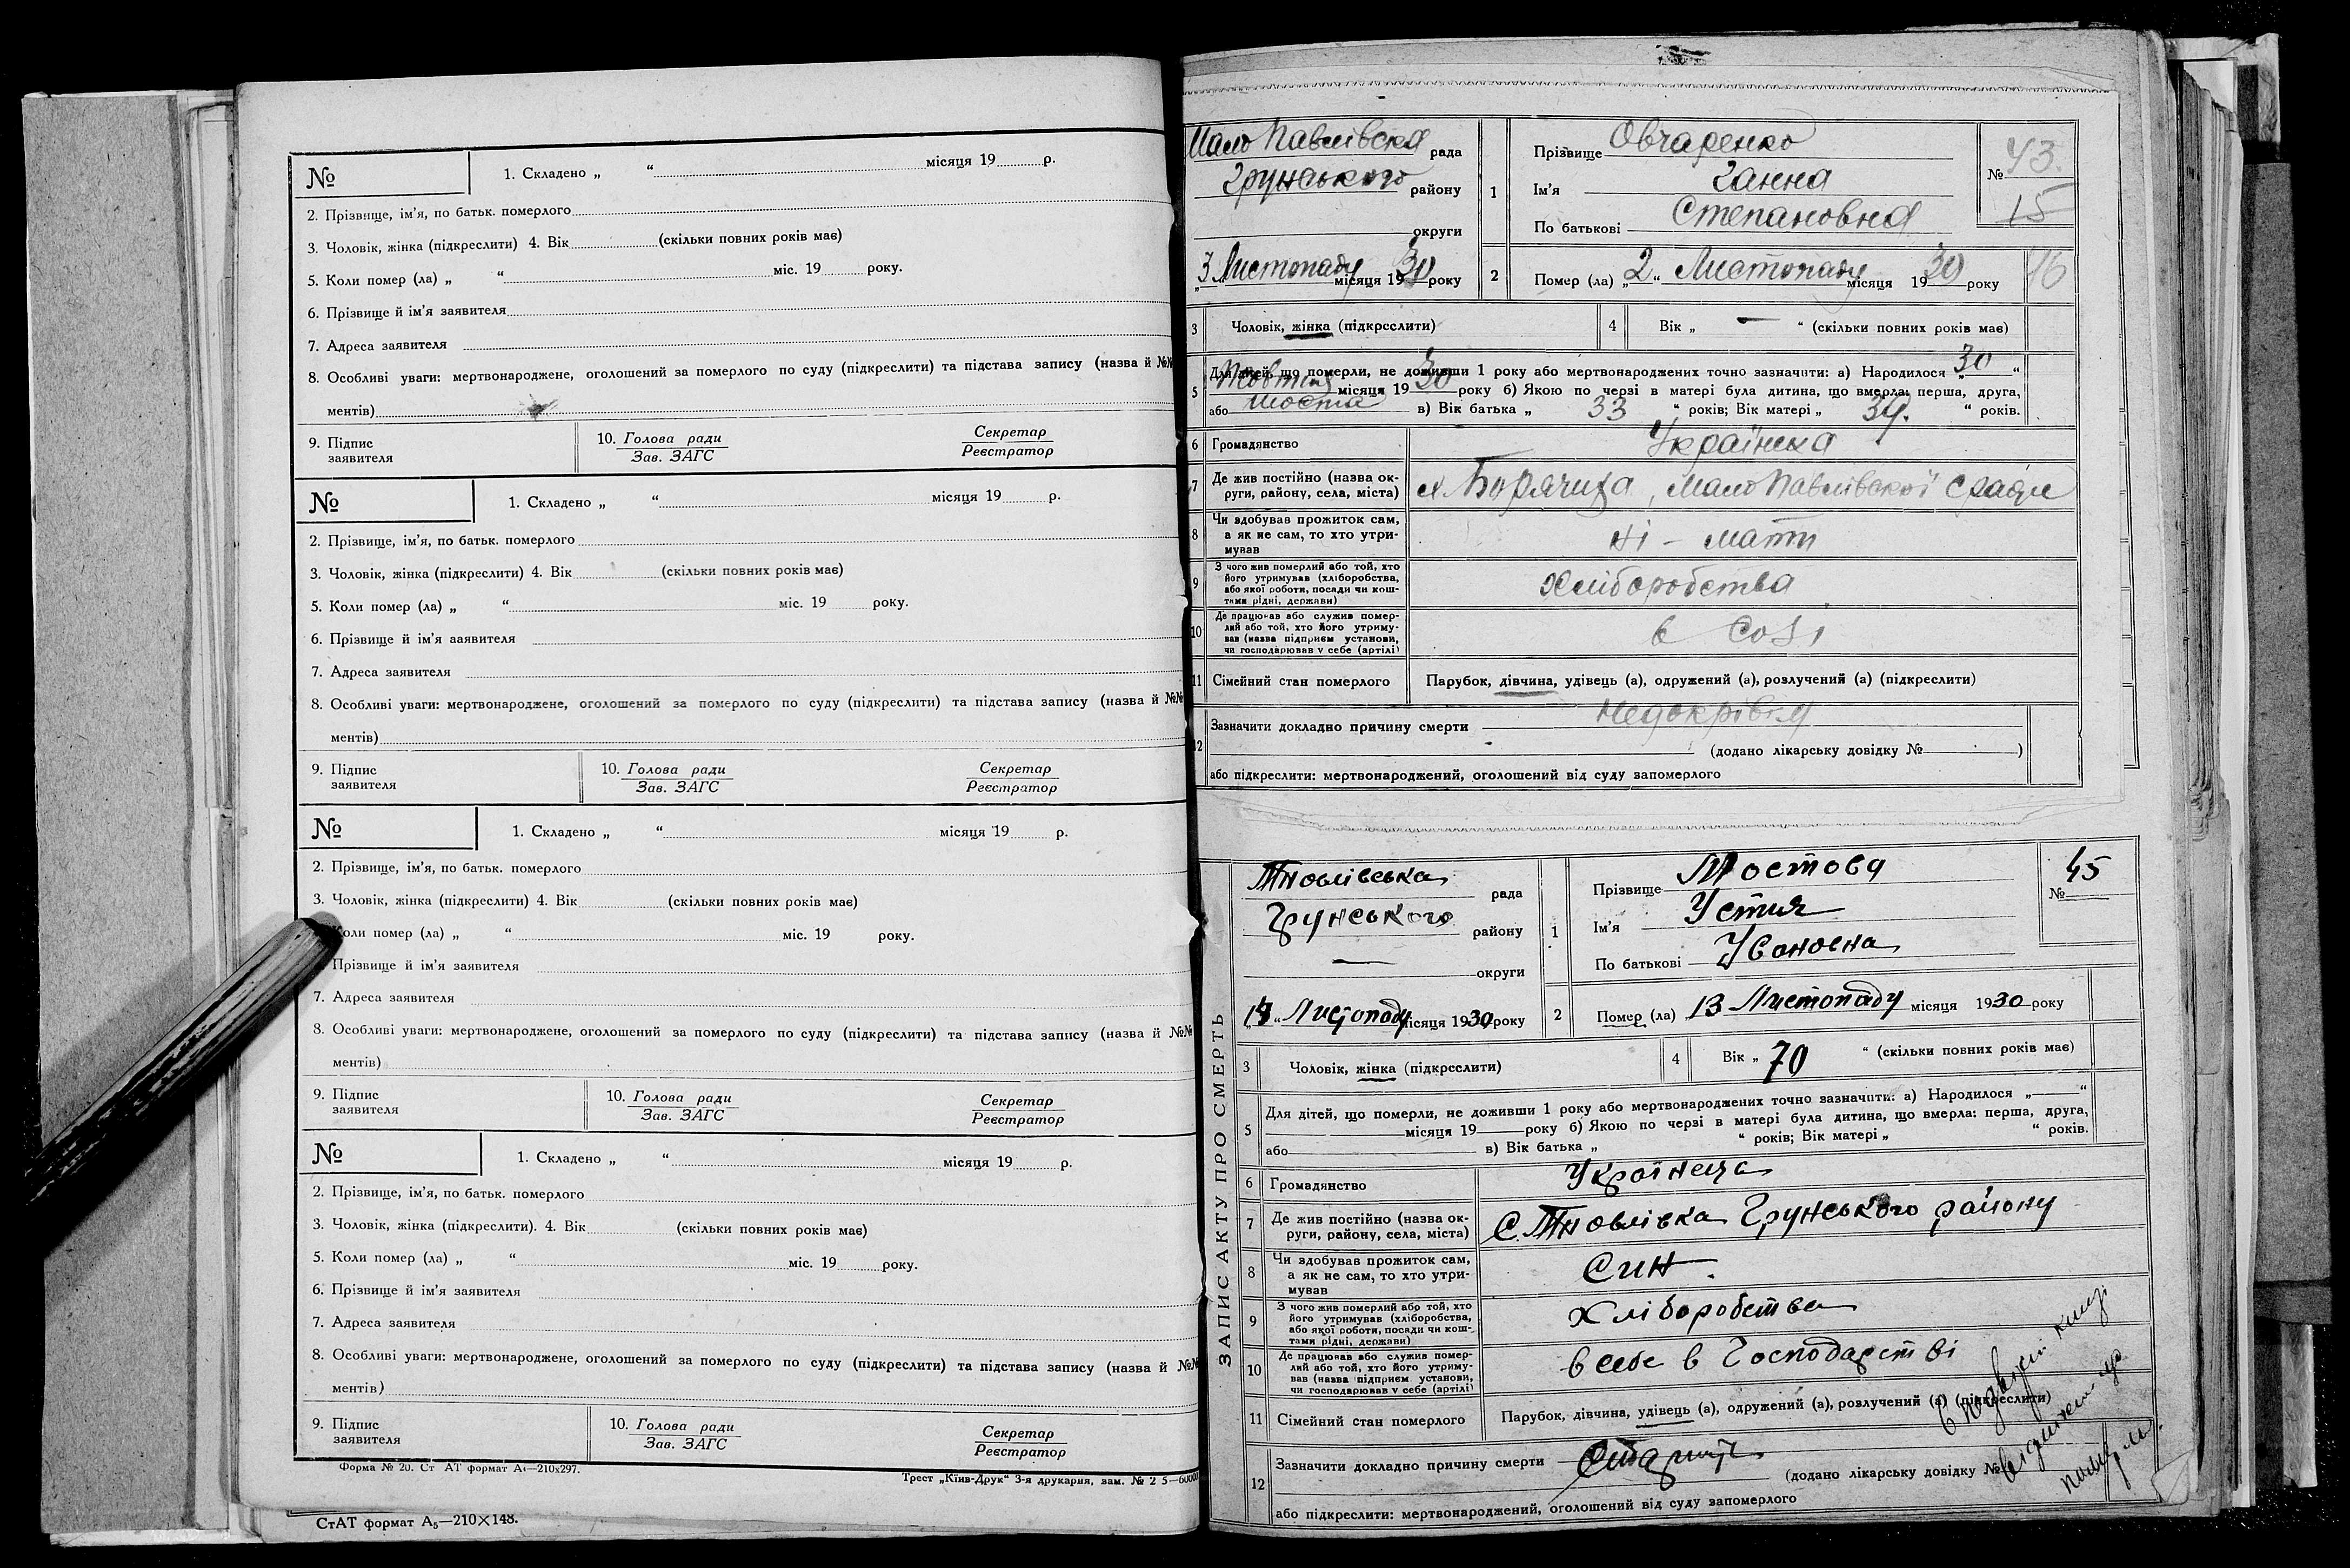 №
1. Складено „ “ місяця 19 р.
2. Прізвище, ім'я, по батьк. померлого
3. Чоловік, жінка (підкреслити) 4. Вік (скільки повних років має)
5. Коли помер (ла) „ “ міс. 19 року.
6. Прізвище й ім'я заявителя
7. Адреса заявителя
8. Особливі уваги: мертвонароджене, оголошений за померлого по суду (підкреслити) та підстава запису (назва й №№
ментів)
9. Підпис заявителя
10. Голова ради
Зав. ЗАГС
Секретар
Реєстратор
№
1. Складено „ “ місяця 19 р.
2. Прізвище, ім'я, по батьк. померлого
3. Чоловік, жінка (підкреслити) 4. Вік (скільки повних років має)
5. Коли помер (ла) „ “ міс. 19 року.
6. Прізвище й ім'я заявителя
7. Адреса заявителя
8. Особливі уваги: мертвонароджене, оголошений за померлого по суду (підкреслити) та підстава запису (назва й №№
ментів)
9. Підпис заявителя
10. Голова ради
Зав. ЗАГС
Секретар
Реєстратор
№
1. Складено „ “ місяця 19 р.
2. Прізвище, ім'я, по батьк. померлого
3. Чоловік, жінка (підкреслити) 4. Вік (скільки повних років має)
Коли помер (ла) „ “ міс. 19 року.
Прізвище й ім'я заявителя
7. Адреса заявителя
8. Особливі уваги: мертвонароджене, оголошений за померлого по суду (підкреслити) та підстава запису (назва й №№
ментів)
9. Підпис заявителя
10. Голова ради
Зав. ЗАГС
Секретар
Реєстратор
№
1. Складено „ “ місяця 19 р.
2. Прізвище, ім'я, по батьк. померлого
3. Чоловік, жінка (підкреслити). 4. Вік (скільки повних років має)
5. Коли помер (ла) „ “ міс. 19 року.
6. Прізвище й ім'я заявителя
7. Адреса заявителя
8. Особливі уваги: мертвонароджене, оголошений за померлого по суду (підкреслити) та підстава запису (назва й №№
ментів)
9. Підпис заявителя
10. Голова ради
Зав. ЗАГС
Секретар
Реєстратор
Форма № 20. Ст АТ формат А4—210х297.
Трест „Київ-Друк“ 3-я друкарня, зам. № 2 5—60000
СтАТ формат А5—210×148.
Мало Павлівска рада
Грунського району
округи
„3“ Листопаду місяця 1930 року
1
Прізвище Овчаренко
Ім'я Ганна
По батькові Степановна
№ 43.
15
2 Помер (ла) „2“ Листопаду місяця 1930 року
16
3 Чоловік, жінка (підкреслити)
4 Вік „ — “ (скільки повних років має)
5 Для дітей, що померли, не доживши 1 року або мертвонароджених точно зазначити: а) Народилося „30“
Жовтня місяця 1930 року б) Якою по черзі в матері була дитина, що вмерла: перша, друга,
або шоста в) Вік батька „ 33 “ років; Вік матері „ 34. “ років.
6 Громадянство Українска
7 Де жив постійно (назва округи, району, села, міста) х. Борячиха, Мало Павлівскої с ради
8 Чи здобував прожиток сам, а як не сам, то хто утримував ні - мати
9 З чого жив померлий або той, хто його утримував (хліборобства, або якої роботи, посади чи коштами рідні, держави) Хліборобства
10 Де працював або служив померлий або той, хто його утримував (назва підприєм установи, чи господарював у себе (артілі) в Созі
11 Сімейний стан померлого Парубок, дівчина, удівець (а), одружений (а), розлучений (а) (підкреслити)
12 Зазначити докладно причину смерти Недокрівія
(додано лікарську довідку № )
або підкреслити: мертвонароджений, оголошений від суду запомерлого
ЗАПИС АКТУ ПРО СМЕРТЬ
рада
Грунського району
округи
“ Листопаду місяця 1930 року
1
Прізвище Мостова
Ім'я Устия
По батькові Увановна
45
№
2 Помер (ла) „13 Листопаду місяця 1930 року
3 Чоловік, жінка (підкреслити)
4 Вік „ 70 “ (скільки повних років має)
5 Для дітей, що померли, не доживши 1 року або мертвонароджених точно зазначити: а) Народилося „ “
місяця 19 року б) Якою по черзі в матері була дитина, що вмерла: перша, друга,
або в) Вік батька „ “ років; Вік матері „ “ років.
6 Громадянство Українца
7 Де жив постійно (назва округи, району, села, міста) С. Грунського району
8 Чи здобував прожиток сам, а як не сам, то хто утримував Син.
9 З чого жив померлий або той, хто його утримував (хліборобства, або якої роботи, посади чи коштами рідні, держави) Хліборобства
10 Де працював або служив померлий або той, хто його утримував (назва підприєм. установи, чи господарював у себе (артілі) в себе в Господарстві
11 Сімейний стан померлого Парубок, дівчина, удівець (а), одружений (а), розлучений (а) (підкреслити)
12 Зазначити докладно причину смерти
(додано лікарську довідку №
або підкреслити: мертвонароджений, оголошений від суду запомерлого